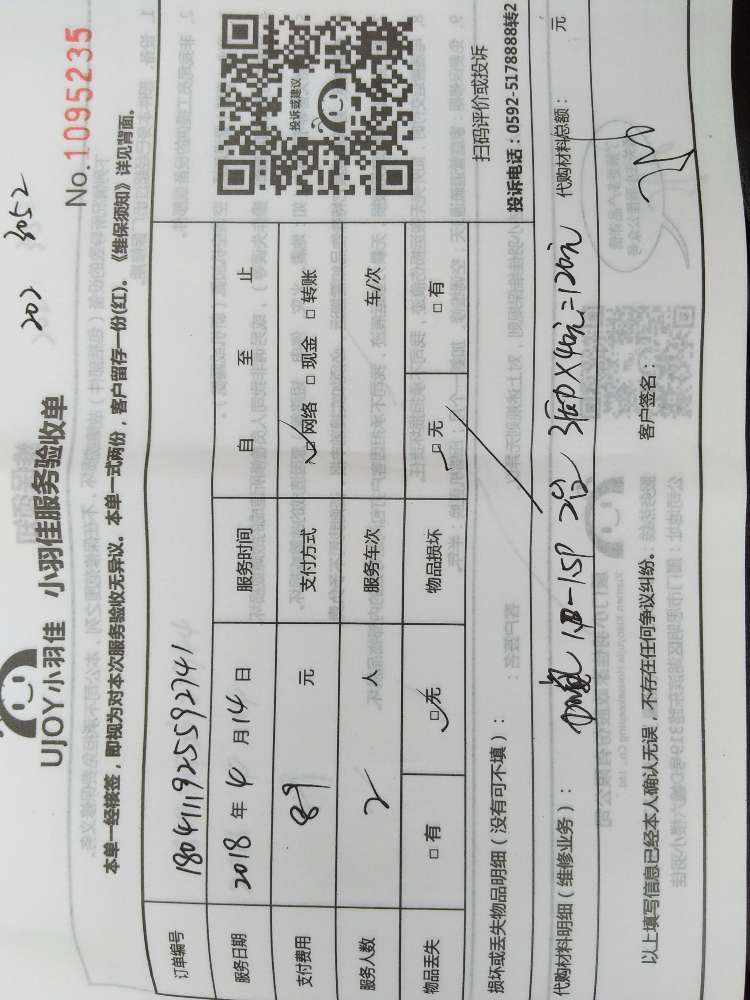 202 3052
UJOY小羽佳 小羽佳服务验收单
No.1095235
本单一经核签，即视为对本次服务验收无异议。本单一式两份，客户留存一份(红)。《维保须知》详见背面。
订单编号 1804111925592741
服务日期 2018 年 4 月 14 日 服务时间 自 至 止
支付费用 89 元 支付方式 ☑网络 □现金 □转账
服务人数 2 人 服务车次 车/次
物品丢失 □有 ☑无 物品损坏 ☑无 □有
投诉或建议
扫码评价或投诉
投诉电话：0592-5178888转2
损坏或丢失物品明细（没有可不填）：
代购材料明细（维修业务）： 1.5P 3 X 40元=120元 代购材料总额： 元
以上填写信息已经本人确认无误，不存在任何争议纠纷。 客户签名：